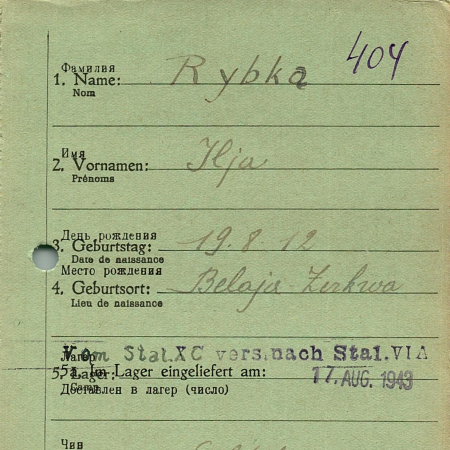 404
Фамилия
1. Name: Rybka
Nom
Имя
2. Vornamen: Ilja
Prénoms
День рождения
3. Geburtstag: 19.8.12
Date de naissance
Место рождения
4. Geburtsort: Belaja-Zerkwa
Lieu de naissance
Vom Stal.XC vers.nach Stal.VIA
Лагерь
5. Lager: Im Lager eingeliefert am: 17. AUG. 1943
Camp
Доставлен в лагер (число)
Чин